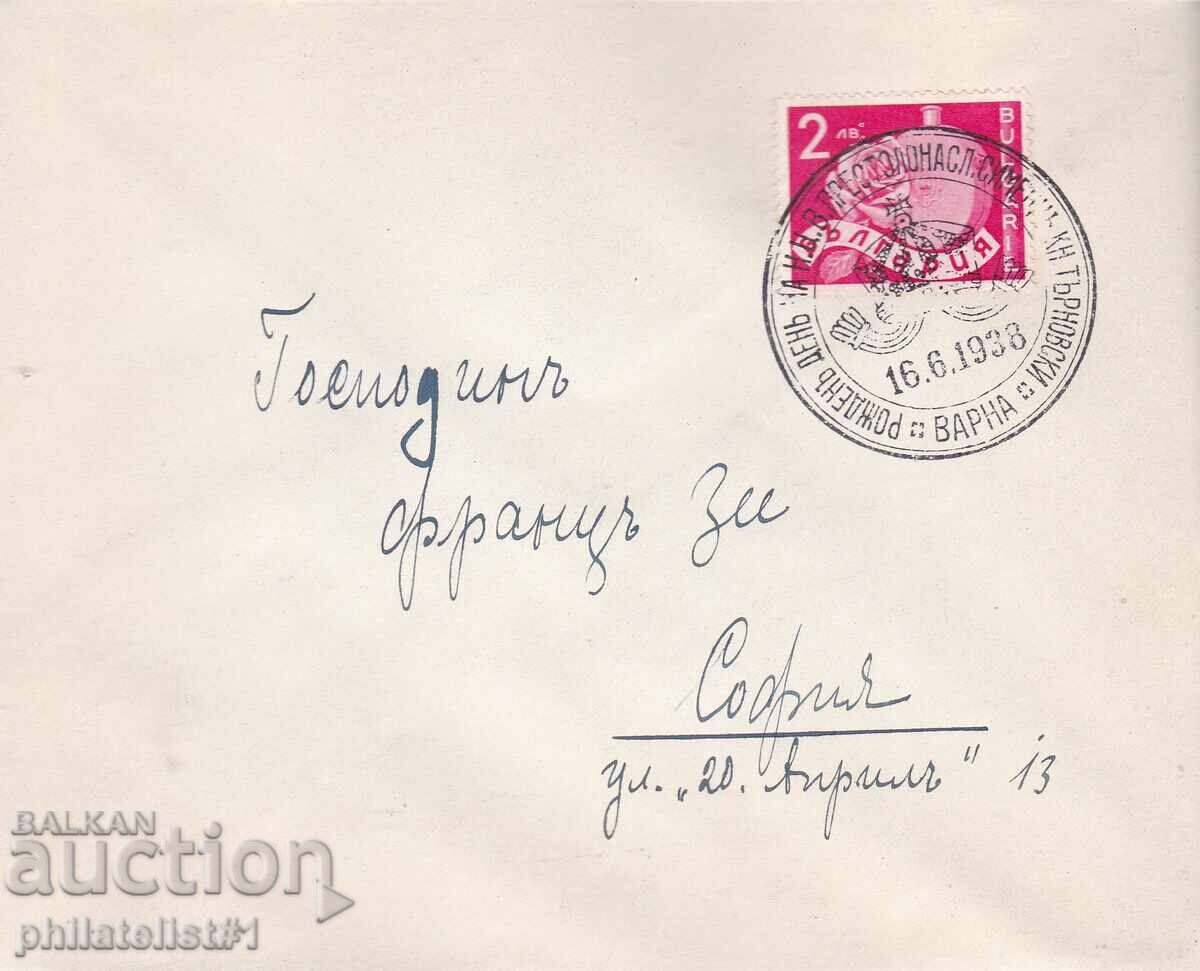 2 лв.
BULGARIA
БЪЛГАРИЯ
РОЖДЕНЪ ДЕНЬ НА Н.Ц.В. ПРЕСТОЛОНАСЛ. СИМЕОНЪ КН. ТЪРНОВСКИ
16.6.1938
ВАРНА
Господинъ
Францъ Зее
София
ул. „20. Априлъ" 13
BALKAN
auction
philatelist#1